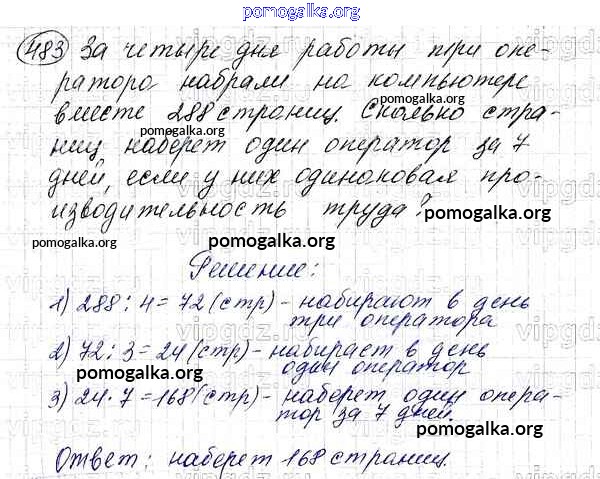 pomogalka.org
483 За четыре дня работы три опе-
ратора набрали на компьютере
вместе 288 страниц. Сколько стра-
pomogalka.org
pomogalka.org
ниц наберет один оператор за 7
дней, если у них одинаковая про-
изводительность труда?
pomogalka.org
pomogalka.org
pomogalka.org
Решение:
1) 288 : 4 = 72 (стр) - набирают в день
три оператора
2) 72 : 3 = 24 (стр) - набирает в день
один оператор
pomogalka.org
3) 24 · 7 = 168 (стр) - наберет один опера-
тор за 7 дней.
pomogalka.org
Ответ: наберет 168 страниц.